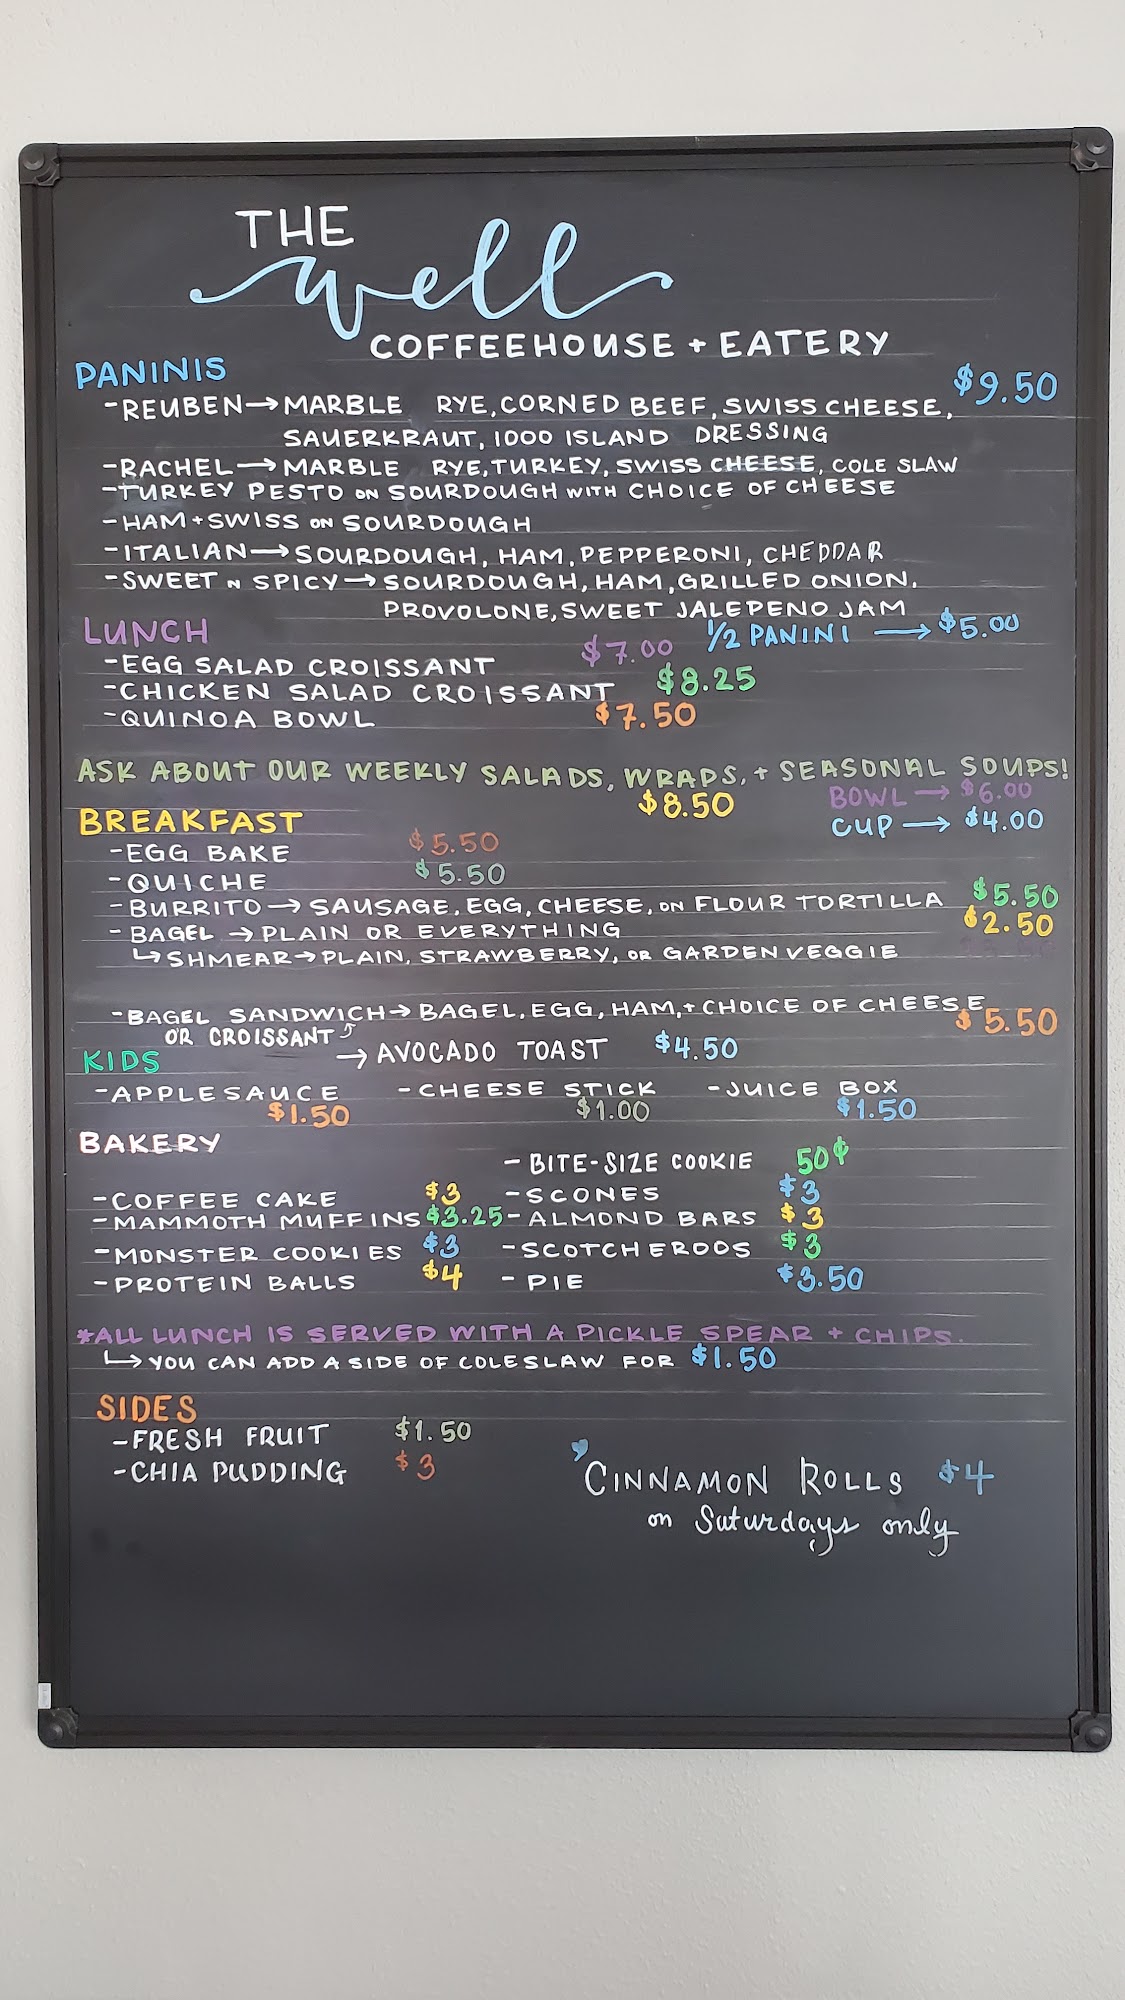 THE
well
COFFEEHOUSE + EATERY
PANINIS
$9.50
-REUBEN→MARBLE RYE, CORNED BEEF, SWISS CHEESE,
SAUERKRAUT, 1000 ISLAND DRESSING
-RACHEL→MARBLE RYE, TURKEY, SWISS CHEESE, COLE SLAW
-TURKEY PESTO ON SOURDOUGH WITH CHOICE OF CHEESE
-HAM+SWISS ON SOURDOUGH
-ITALIAN→SOURDOUGH, HAM, PEPPERONI, CHEDDAR
-SWEET N SPICY→SOURDOUGH, HAM, GRILLED ONION,
PROVOLONE, SWEET JALEPENO JAM
1/2 PANINI → $5.00
LUNCH
-EGG SALAD CROISSANT $7.00
-CHICKEN SALAD CROISSANT $8.25
-QUINOA BOWL $7.50
ASK ABOUT OUR WEEKLY SALADS, WRAPS, + SEASONAL SOUPS!
$8.50 BOWL → $6.00
CUP → $4.00
BREAKFAST
-EGG BAKE $5.50
-QUICHE $5.50
-BURRITO→ SAUSAGE, EGG, CHEESE, ON FLOUR TORTILLA $5.50
-BAGEL → PLAIN OR EVERYTHING $2.50
↳SHMEAR→PLAIN, STRAWBERRY, OR GARDEN VEGGIE
-BAGEL SANDWICH→ BAGEL, EGG, HAM, + CHOICE OF CHEESE $5.50
OR CROISSANT
→ AVOCADO TOAST $4.50
KIDS
-APPLESAUCE -CHEESE STICK -JUICE BOX
$1.50 $1.00 $1.50
BAKERY
- BITE-SIZE COOKIE 50¢
-COFFEE CAKE $3 -SCONES $3
-MAMMOTH MUFFINS $3.25 -ALMOND BARS $3
-MONSTER COOKIES $3 -SCOTCHEROOS $3
-PROTEIN BALLS $4 - PIE $3.50
*ALL LUNCH IS SERVED WITH A PICKLE SPEAR + CHIPS.
↳YOU CAN ADD A SIDE OF COLESLAW FOR $1.50
SIDES
-FRESH FRUIT $1.50
-CHIA PUDDING $3
CINNAMON ROLLS $4
on Saturdays only